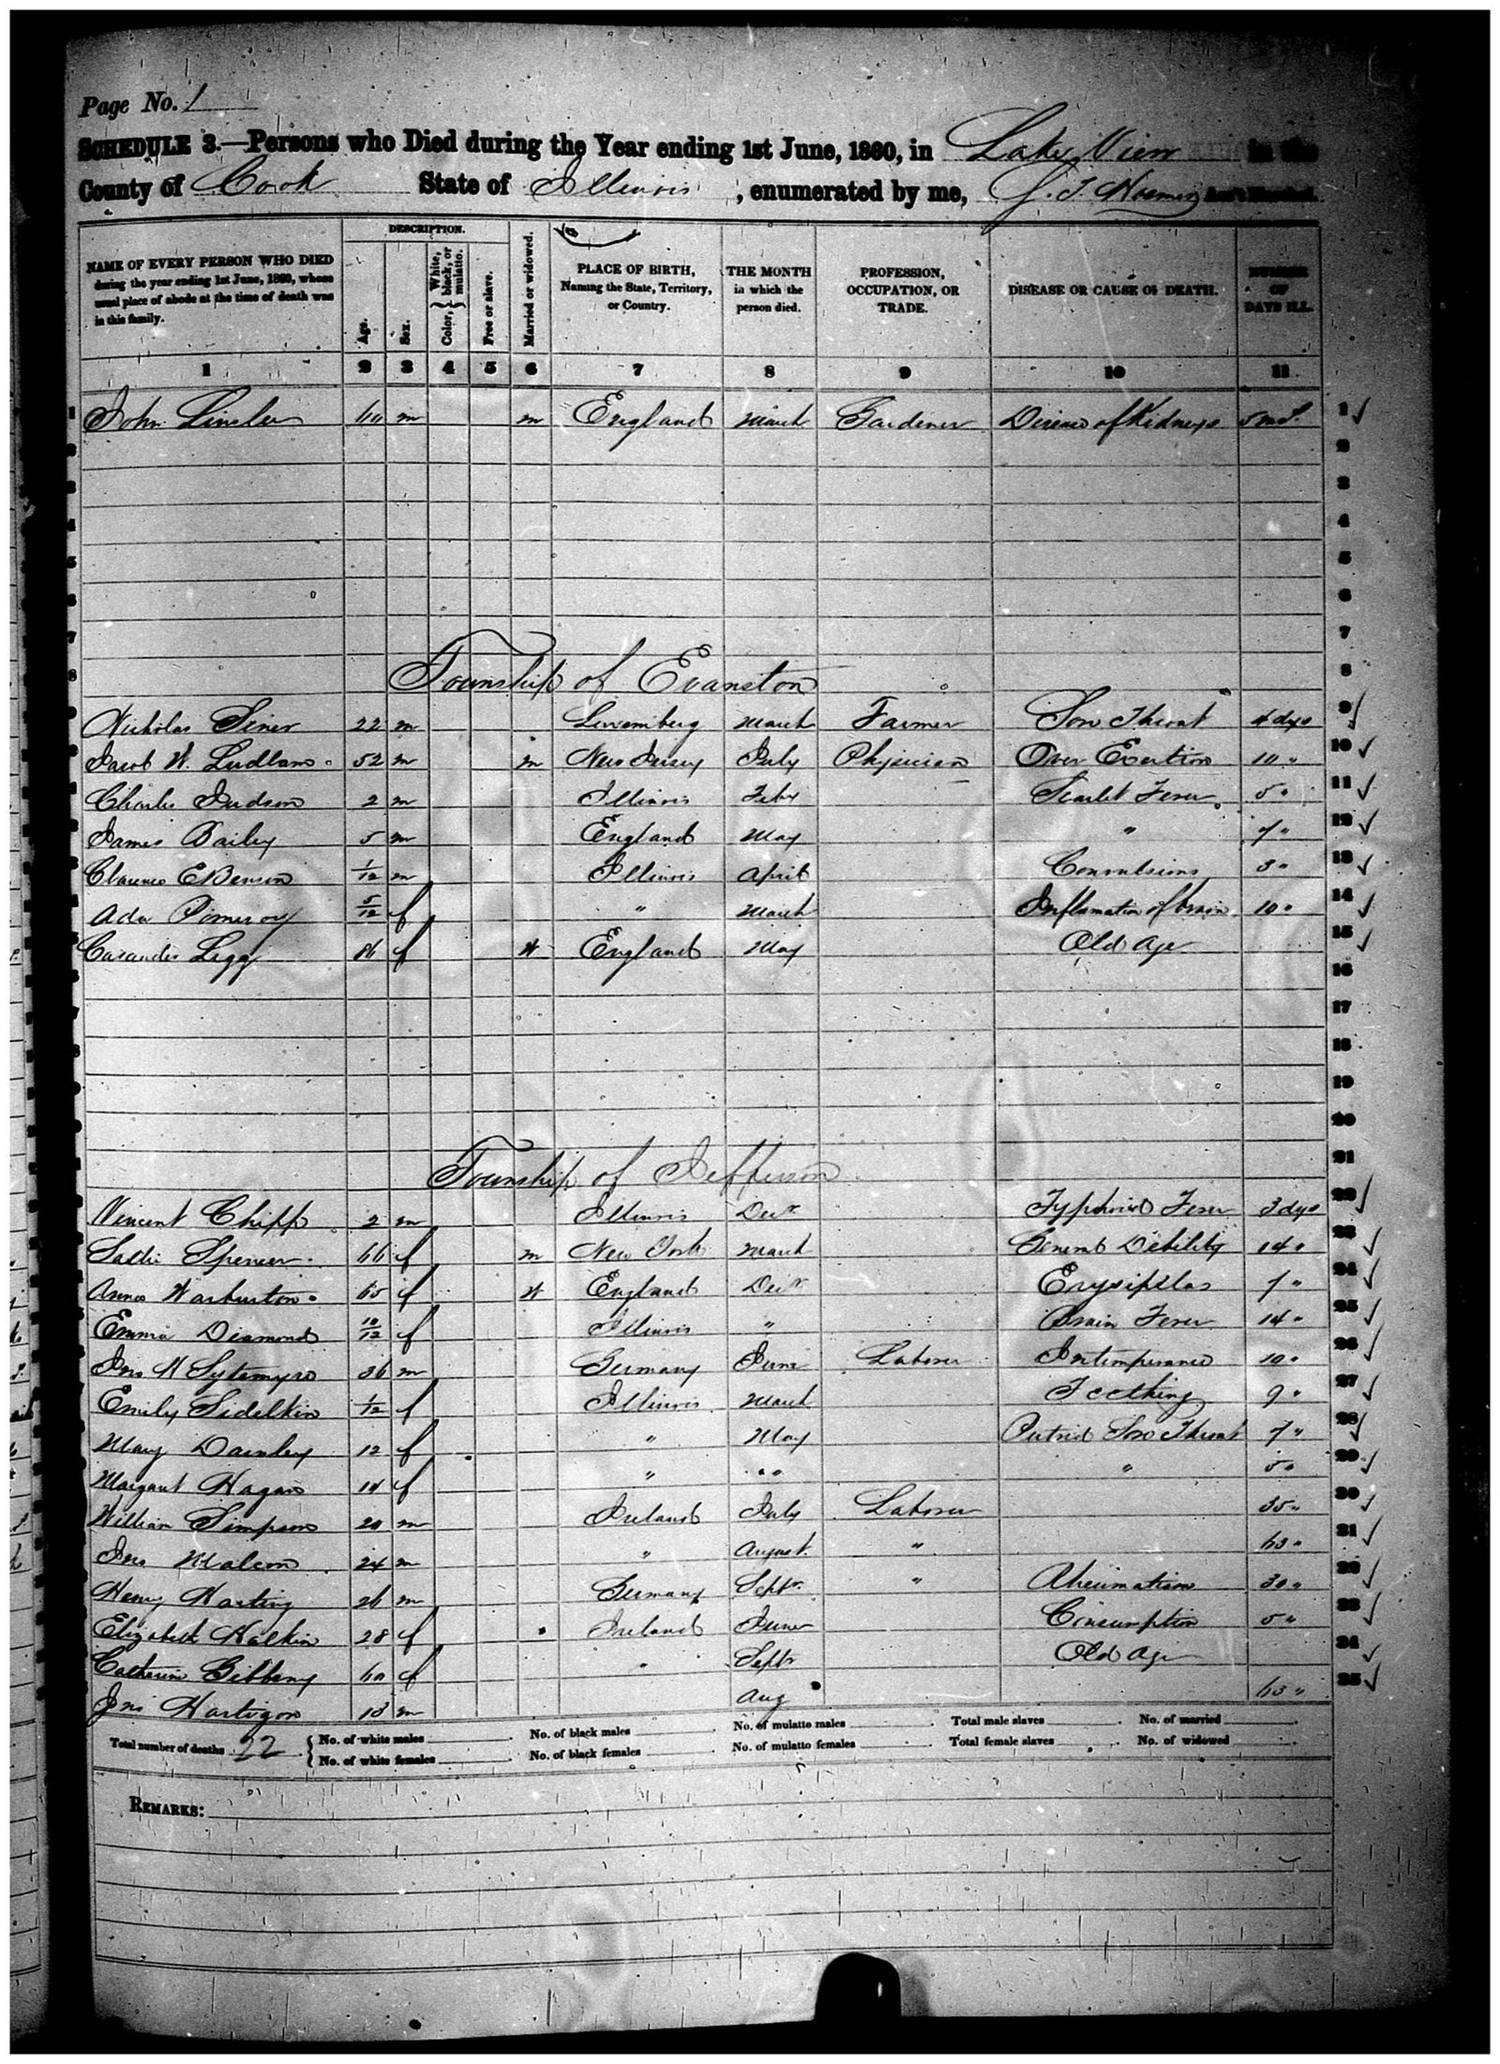 Page No. 1
SCHEDULE 3.—Persons who Died during the Year ending 1st June, 1860, in Lake View in the
County of Cook State of Illinois, enumerated by me, Ass't Marshal.
DESCRIPTION.
NAME OF EVERY PERSON WHO DIED during the year ending 1st June, 1860, whose usual place of abode at the time of death was in this family.
Age.
Sex.
Color, { White, black, or mulatto.
Free or slave.
Married or widowed.
PLACE OF BIRTH, Naming the State, Territory, or Country.
THE MONTH in which the person died.
PROFESSION, OCCUPATION, OR TRADE.
DISEASE OR CAUSE OF DEATH.
NUMBER OF DAYS ILL.
1 2 3 4 5 6 7 8 9 10 11
1 John 60 m m England March Gardener Disease of Kidneys 5 mos. 1
2 2
3 3
4 4
5 5
6 6
7 7
8 Township of Evanston 8
9 Nicholas Siner 22 m Luxemberg March Farmer Sore Throat 4 dys 9
Jacob W. Ludlam 52 m m New Jersey July Physician Over Exertion 10 " 10
Charles Judson 2 m Illinois Feby Scarlet Fever 5 " 11
James Bailey 5 m England May " 7 " 12
Clarence E Benson 1/12 m Illinois April Convulsions 3 " 13
Ada Pomeroy 5/12 f " March Inflamation of brain 10 " 14
Legg 86 f W England May Old Age 15
16
17
18
19
20
Township of Jefferson 21
Vincent Chipp 2 m Illinois Decr. Typhoid Fever 3 dys 22
Sallie Spencer 66 f m New York March General Debility 14 " 23
Anna Warburton 65 f W England Decr. Erysipelas 7 " 24
Emma Diamond 10/12 f Illinois " Brain Fever 14 " 25
Jno H 36 m Germany June Laborer Intemperance 10 " 26
Emily Sidelkin 1/12 f Illinois March Teething 9 " 27
Mary Dainley 12 f " May Putrid Sore Throat 7 " 28
Margaret Hagan 14 f " " " 5 " 29
William Simpson 20 m Ireland July Laborer 35 " 30
Jno Malcom 24 m " August " 63 " 31
Henry Harting 26 m Germany Septr. " Rheumatism 30 " 32
Elizabeth Halkin 28 f Ireland June Consumption 5 " 33
Catherine Gibbeny 60 f " Septr Old Age 34
Jno Hartigon 13 m Aug 63 " 35
Total number of deaths 22 { No. of white males No. of black males No. of mulatto males Total male slaves No. of married
{ No. of white females No. of black females No. of mulatto females Total female slaves No. of widowed
REMARKS: